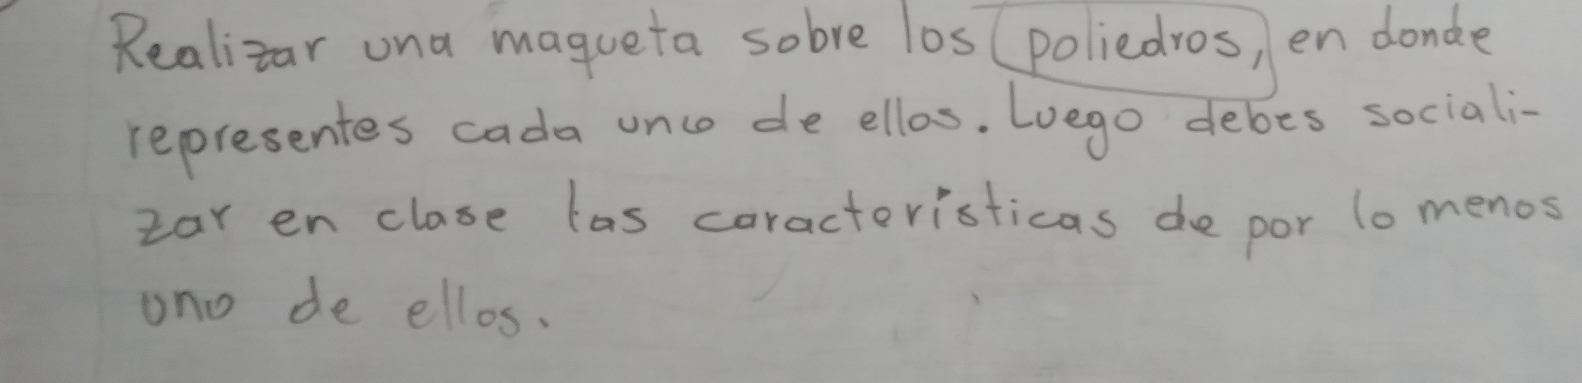 Realizar una maqueta sobre los poliedros, en donde
representes cada uno de ellos. Luego debes sociali-
zar en clase las características de por lo menos
uno de ellos.